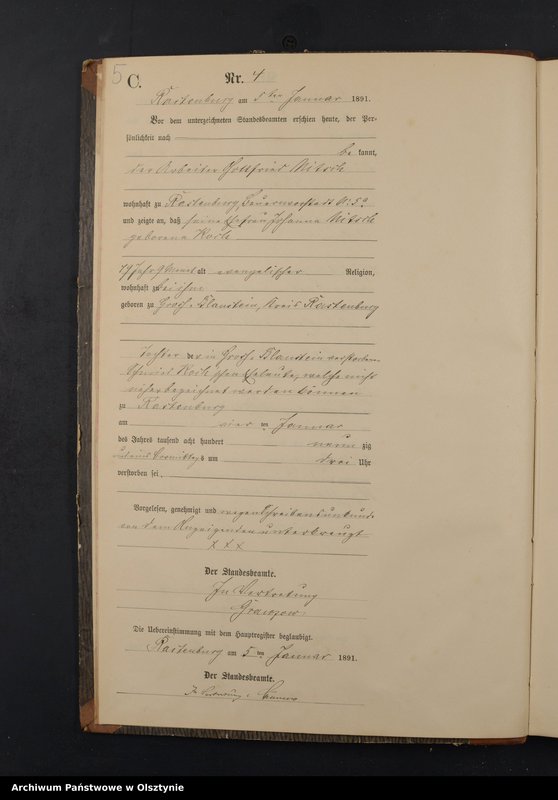 5
C.
Nr. 4
Rastenburg am 5ten Januar 1891.
Vor dem unterzeichneten Standesbeamten erschien heute, der Per-
sönlichkeit nach
be kannt,
der Arbeiter Gottfried Nitsch
wohnhaft zu Rastenburg,
und zeigte an, daß seine Ehefrau Johanna Nitsch
geborene Koch
Jahr 9 Monat alt evangelischer Religion,
wohnhaft zu bei ihm
geboren zu Groß Blaustein, Kreis Rastenburg
Tochter der in Groß Blaustein verstorbenen
Koch'schen Eheleute, welche nicht
näher bezeichnet werden können
zu Rastenburg
am vier ten Januar
des Jahres tausend acht hundert neun zig
und eins Vormittags um drei Uhr
verstorben sei.
Vorgelesen, genehmigt und wegen Schreibensunkunde
von dem Anzeigenden unterkreuzt
x x x
Der Standesbeamte.
In Vertretung
Die Uebereinstimmung mit dem Hauptregister beglaubigt.
Rastenburg am 5ten Januar 1891.
Der Standesbeamte.
In Vertretung
Archiwum Państwowe w Olsztynie